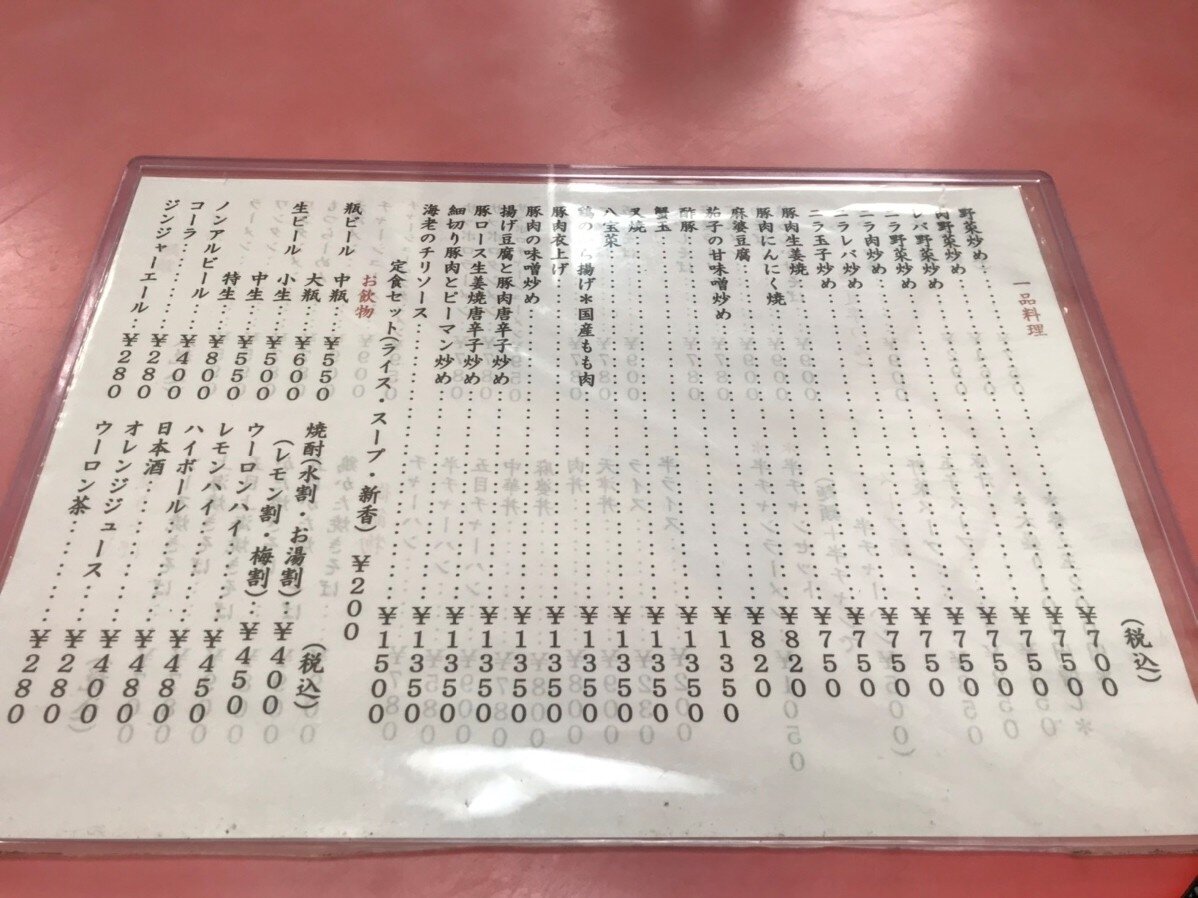 一品料理 (税込)
野菜炒め ¥700
肉野菜炒め ¥750
レバ野菜炒め ¥750
ニラ野菜炒め ¥750
ニラ肉炒め ¥750
ニラレバ炒め ¥750
ニラ玉子炒め ¥750
豚肉生姜焼 ¥750
豚肉にんにく焼 ¥750
麻婆豆腐 ¥820
茄子の甘味噌炒め ¥820
酢豚 ¥1350
蟹玉 ¥1350
叉焼 ¥1350
八宝菜 ¥1350
鶏のから揚げ*国産もも肉 ¥1350
豚肉衣上げ ¥1350
豚肉の味噌炒め ¥1350
揚げ豆腐と豚肉唐辛子炒め ¥1350
豚ロース生姜焼唐辛子炒め ¥1350
細切り豚肉とピーマン炒め ¥1350
海老のチリソース ¥1500
定食セット(ライス・スープ・新香) ¥200
お飲物 (税込)
瓶ビール 中瓶 ¥550
大瓶 ¥600
生ビール 小生 ¥500
中生 ¥550
特生 ¥800
ノンアルビール ¥400
コーラ ¥280
ジンジャーエール ¥280
焼酎(水割・お湯割) ¥400
(レモン割・梅割) ¥450
ウーロンハイ ¥450
レモンハイ ¥480
ハイボール ¥480
日本酒 ¥400
オレンジジュース ¥280
ウーロン茶 ¥280